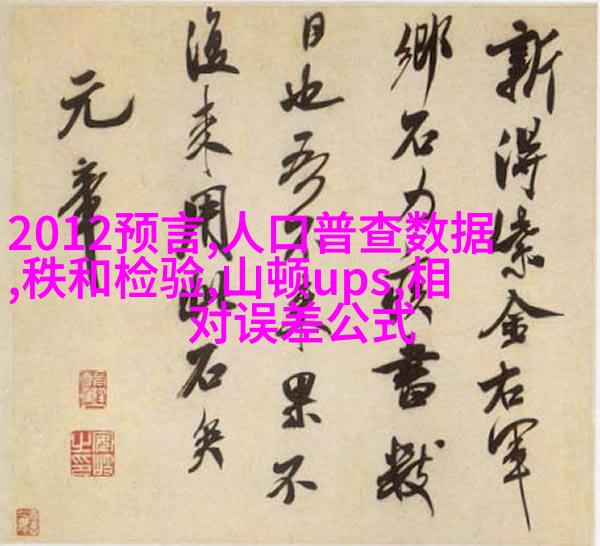 2012预言,人口普查数据
,秩和检验,山顿ups,相
对误差公式
新得紫金右軍
鄉石力疾書數
日也吾不来果不
復来用此石矣
元章